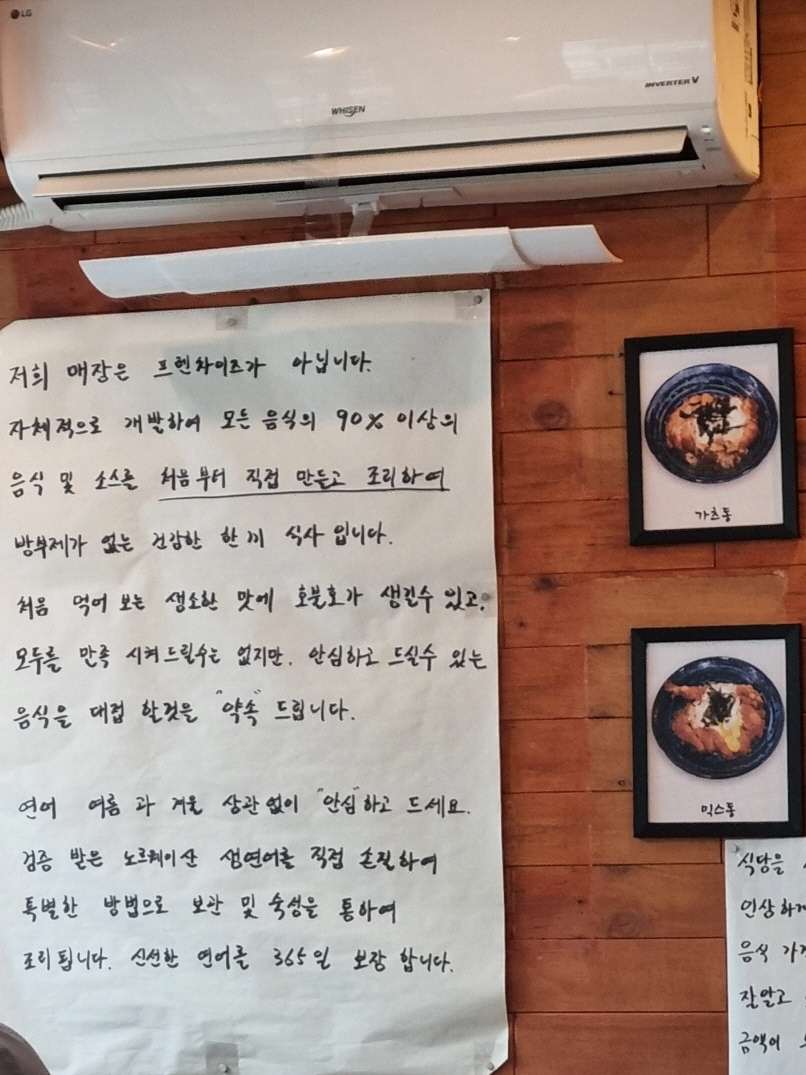 LG
WHISEN
INVERTER V
저희 매장은 프렌차이즈가 아닙니다.
자체적으로 개발하여 모든 음식의 90% 이상의
음식 및 소스를 처음부터 직접 만들고 조리하여
방부제가 없는 건강한 한끼 식사 입니다.
처음 먹어 보는 생소한 맛에 호불호가 생길수 있고,
모두를 만족 시켜드릴수는 없지만, 안심하고 드실수 있는
음식을 대접 할것을 "약속" 드립니다.
연어 여름 과 겨울 상관없이 "안심"하고 드세요.
검증 받은 노르웨이산 생연어를 직접 손질하여
특별한 방법으로 보관 및 숙성을 통하여
조리됩니다. 신선한 연어를 365일 보장 합니다.
가츠동
믹스동
식당을
인상하게
음식
잘알고
금액이